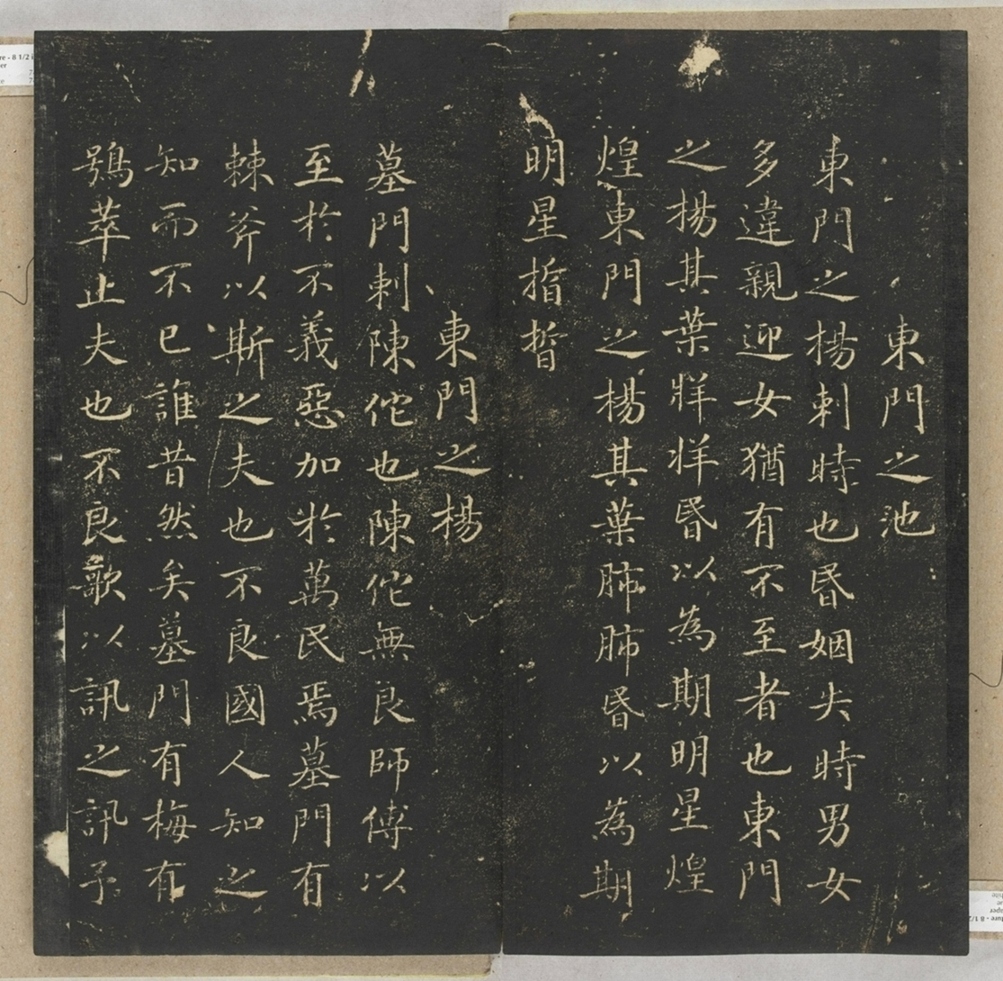 東門之池
東門之楊刺時也昏姻失時男女
多違親迎女猶有不至者也東門
之楊其葉牂牂昏以為期明星煌
煌東門之楊其葉肺肺昏以為期
明星晢晢
東門之楊
墓門刺陳佗也陳佗無良師傅以
至於不義惡加於萬民焉墓門有
棘斧以斯之夫也不良國人知之
知而不已誰昔然矣墓門有梅有
鴞萃止夫也不良歌以訊之訊予